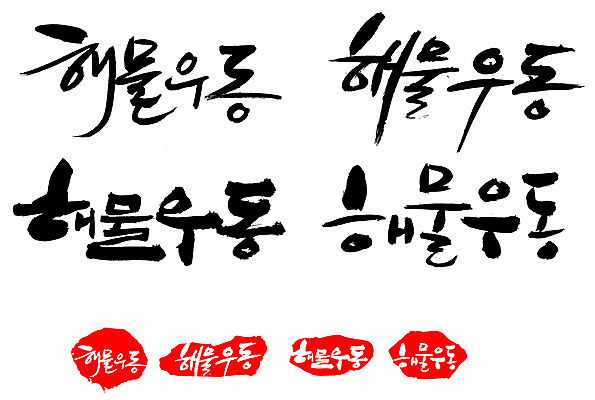 해물우동 해물우동
해물우동 해물우동
해물우동 해물우동 해물우동 해물우동